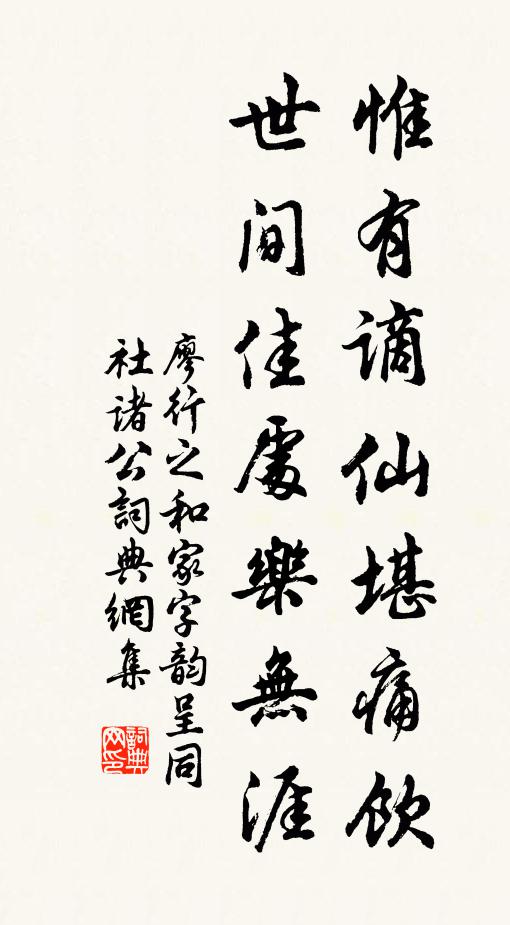 惟有謫仙堪痛飲
世间佳處樂無涯
廖行之和家字韵呈同
社諸公詞典網集
詞典网印